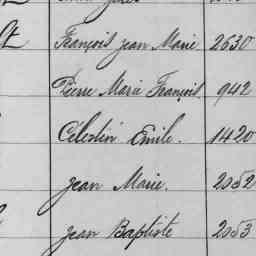 François Jean Marie 2630
Pierre Marie François. 942
Célestin Emile. 1420
Jean Marie. 2052
Jean Baptiste 2053